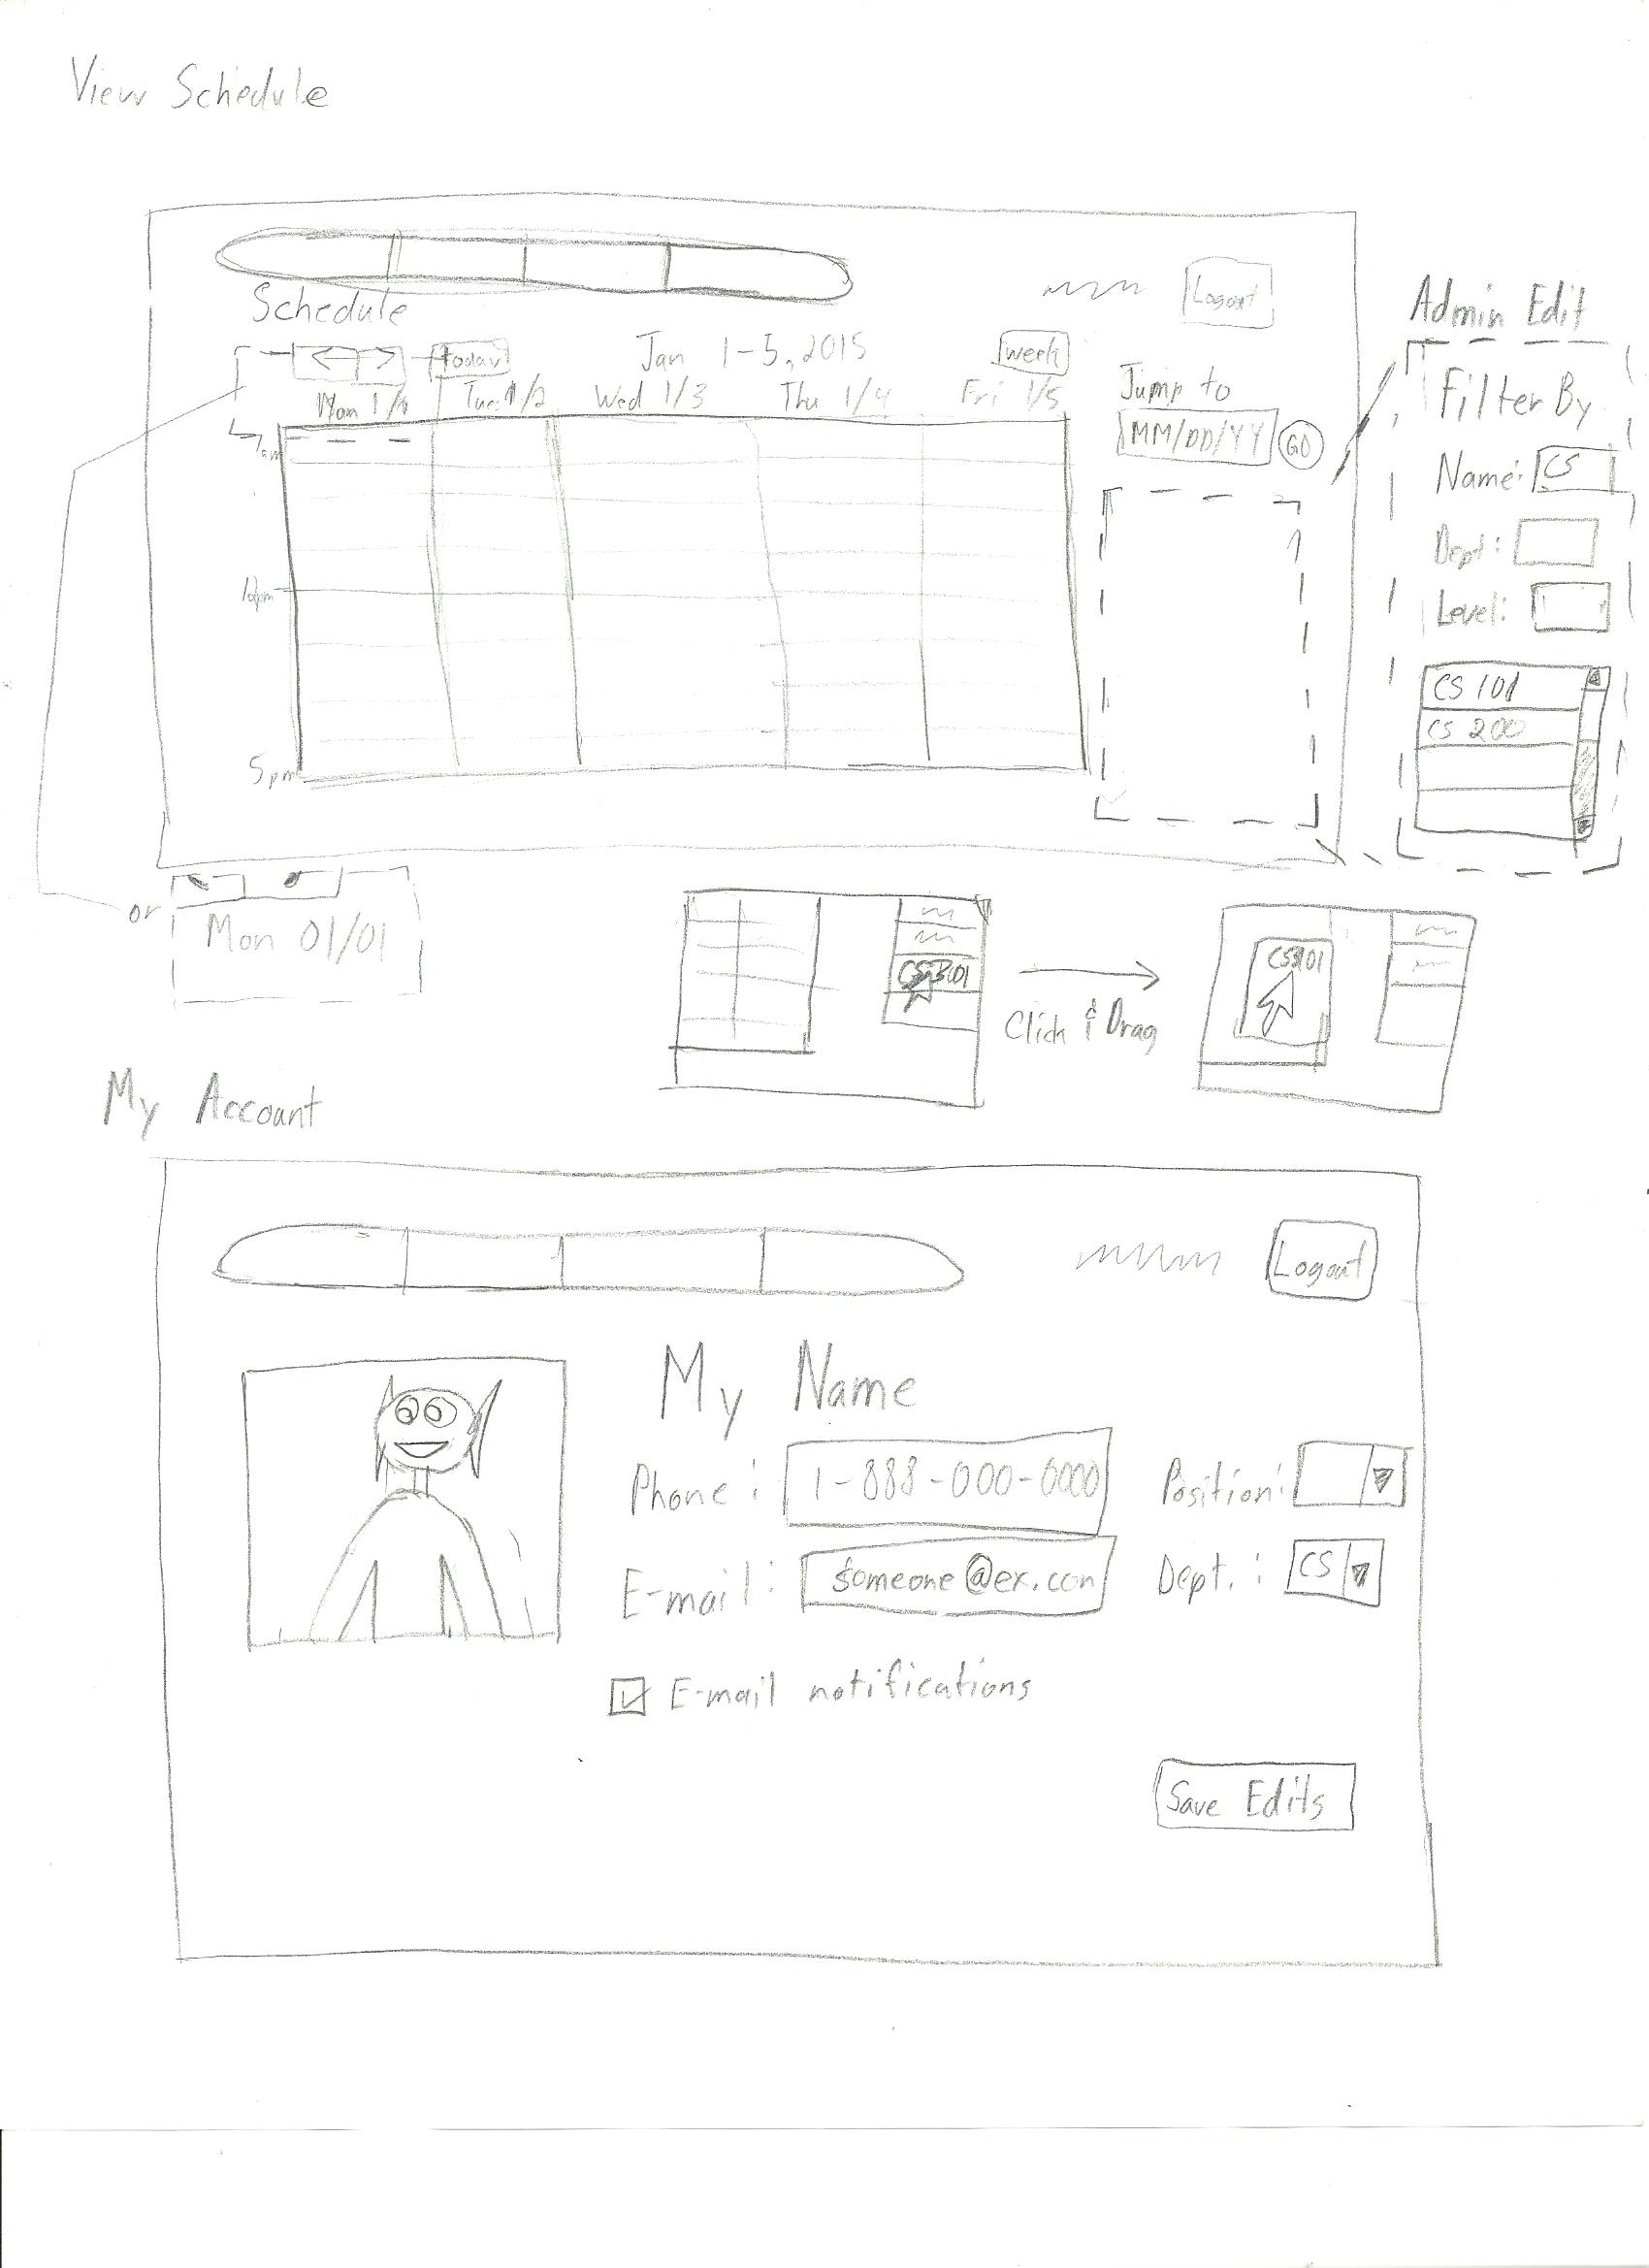 View Schedule
Logout
Schedule
Today
Jan 1-5, 2015
week
Mon 1/1
Tue 1/2
Wed 1/3
Thu 1/4
Fri 1/5
Jump to
MM/DD/YY
GO
7am
5pm
Admin Edit
Filter By
Name: CS
Dept:
Level:
CS 101
CS 200
or
Mon 01/01
Click & Drag
My Account
Logout
My Name
Phone: 1-888-000-0000
Position:
E-mail: someone@ex.com
Dept.: CS
E-mail notifications
Save Edits